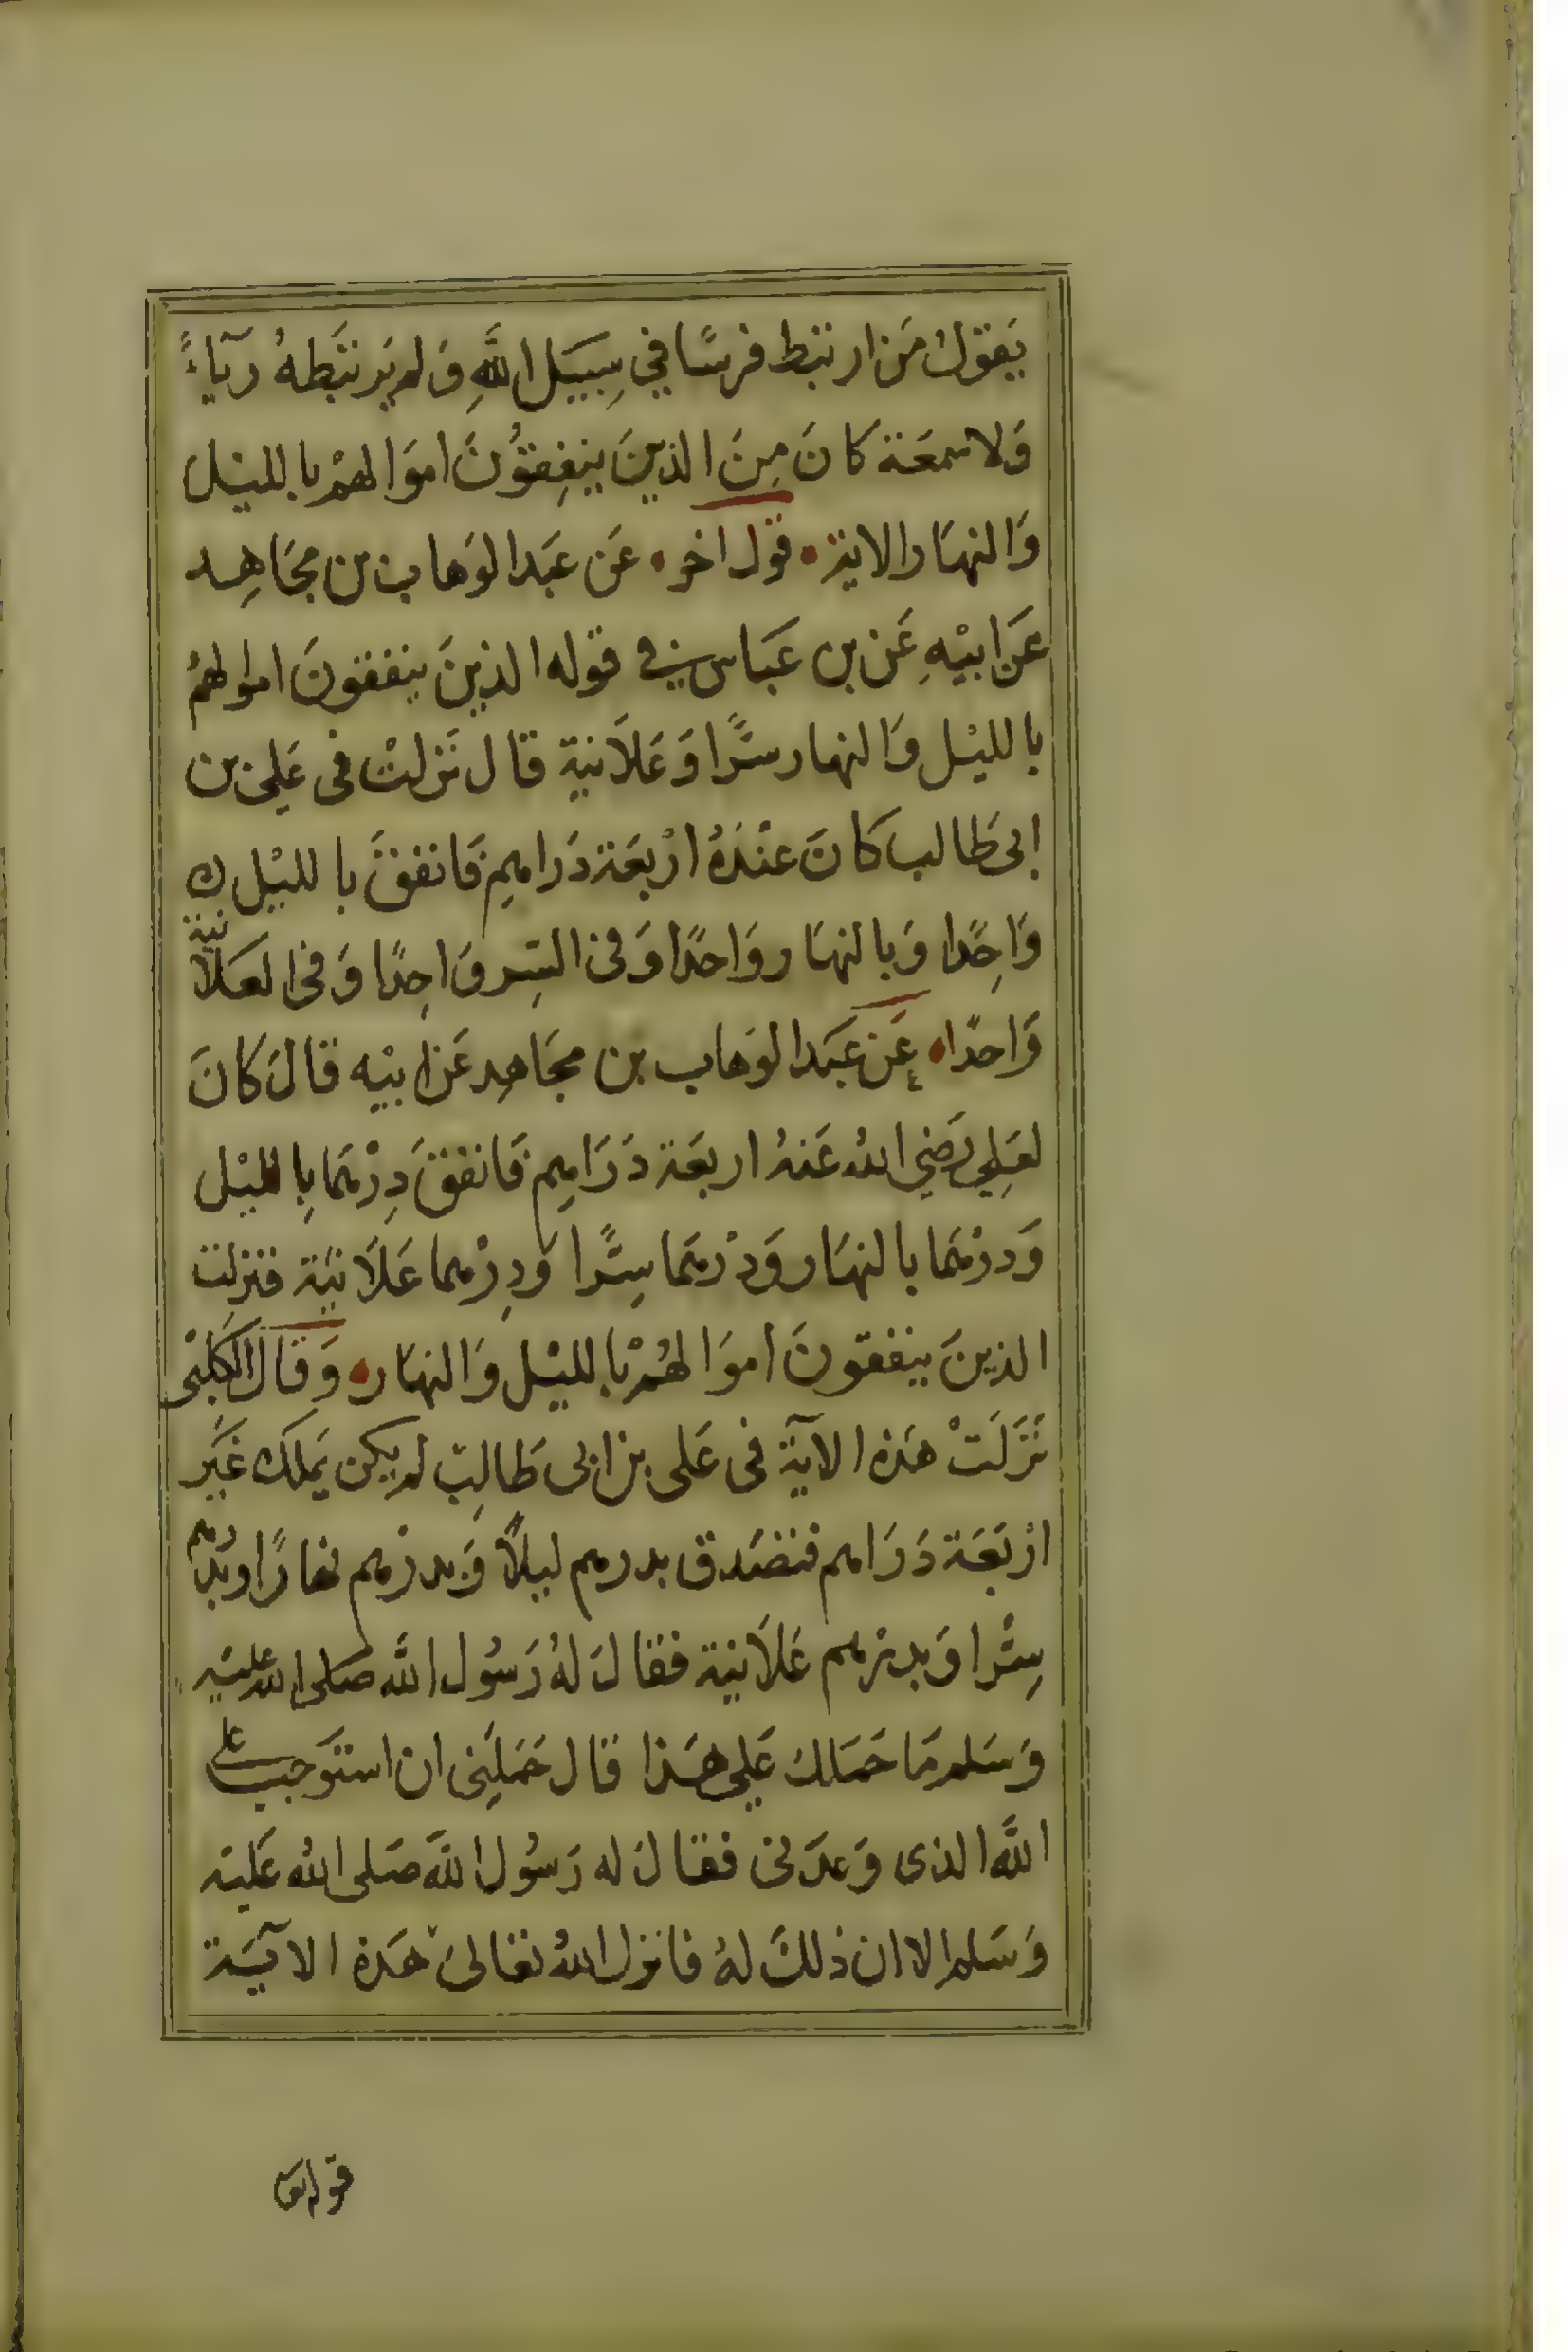 يَقوْلُ مَن ارتبط فرسًا في سِبيَل اللَّهِ وَلم يَرتبَطهُ ريَآءً
وَلا سمعَة كانَ مِنَ الذينَ ينفِقوُنَ اموَالهمْ بالليْل
وَالنهَار الاية قول اخر عَن عَبدالوَهاب بن مجَاهِد
عَن ابيْهِ عَن بن عَبَاس في قوله الذينَ ينفقونَ اموالهُم
بالليْل وَالنهار سرًّا وَعَلَانيةِ قال نَزلتْ فى عَلي بن
ابى طَالب كانَ عنْدَهُ ارْبعَة دَراهمِ فَانفقَ بالليْل
وَاحِدًا وَبالنهَار وَاحدًا وَفى السِر وَاحِدًا وَفى العَلَانية
وَاحدًا عَن عبَدالوَهاب بن مجَاهِد عَن ابيْه قالَ كانَ
لعَلِي رَضيَ اللهُ عَنهُ اربعَة دَرَاهِم فَانفقَ دِرْهَما بِالليْل
وَدرْهَما بالنهَار وَدرْهَما سِرًّا وَدِرْهما عَلَانيَة فنزلت
الذينَ ينفقونَ اموَالهُمْ بالليْل وَالنهَار وَقالَ الكَلبْى
نَزَلَتْ هَذه الآيَة فى عَلى بن ابى طَالِب لم يكن يَملكُ غَيَر
ارْبَعَة دَرَاهم فتصَدق بدرهم ليلًا وَبدرْهم نهارًا وبدرهم
سِرًّا وَبدرْهم عَلَانية فقالَ لهُ رَسُول اللَّه صَلى الله عليَه
وَسَلم مَا حَمَلك عَلي هَذا قال حَمَلِنَى ان استوَجب على
اللَّه الذى وَعدَنى فقالَ له رَسُول اللَّه صَلى اللهُ عَليَه
وَسَلم الا ان ذلكَ لهُ فانزل اللهُ تعَالىَ هَذه الآيَة